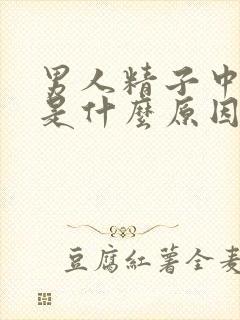 男人精子中
是什麼原因
豆腐紅薯全麥